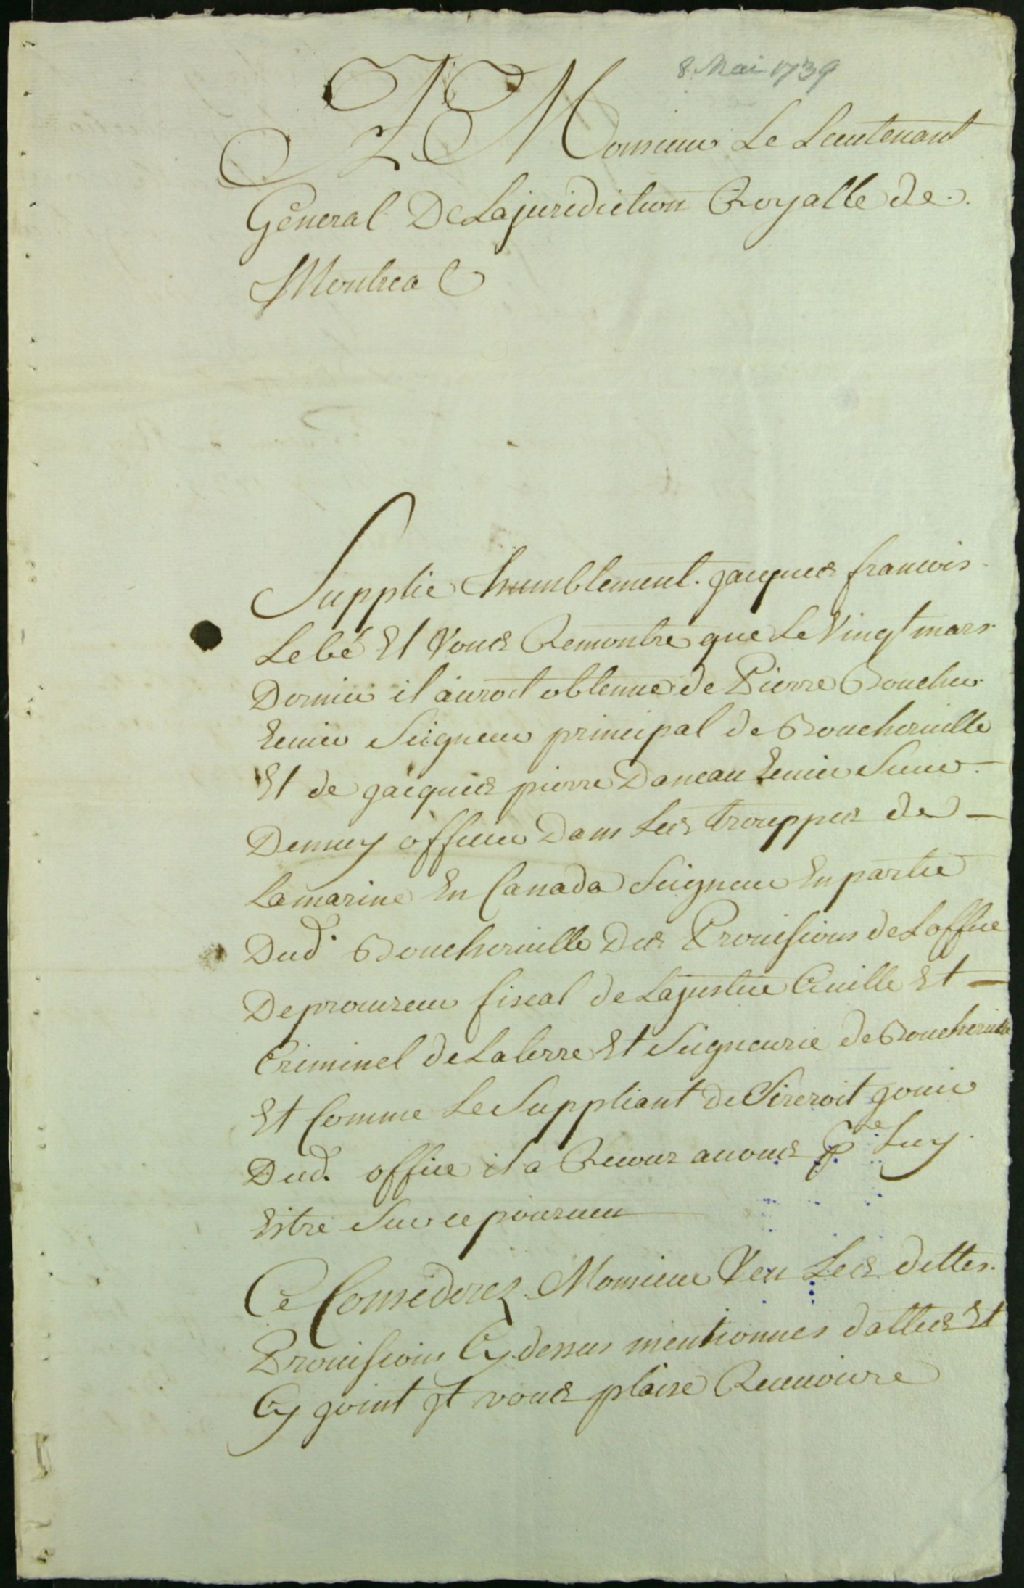 8 Mai 1739
A Monsieur Le Lieutenant
General De Lajuridiction Royalle de
Montreal
Supplie humblement jacques francois
Lebé Et Vous Remontre que Le Vingt mars
Dernier il auroit obtenue de Pierre Boucher
Ecuier Seigneur principal de Boucherville
Et de jacques pierre Daneau Ecuier Sieur
Demuy officier Dans Les trouppes de
Lamarine En Canada Seigneur En partie
Dud. Boucherville Des Provisions de Loffice
De procureur fiscal de Lajustice Civille Et
Criminel de Laterre Et Seigneurie de Boucherville
Et Comme Le Suppliant de Sireroit jouir
Dud. office il a Recour avous pr. Luy
Estre Sur ce pourveu
Ce Considerez Monsieur Veu Les dittes
Provisions Cy dessus mentionnes dattées Et
Cy joint Jl vous plaise Recevoire